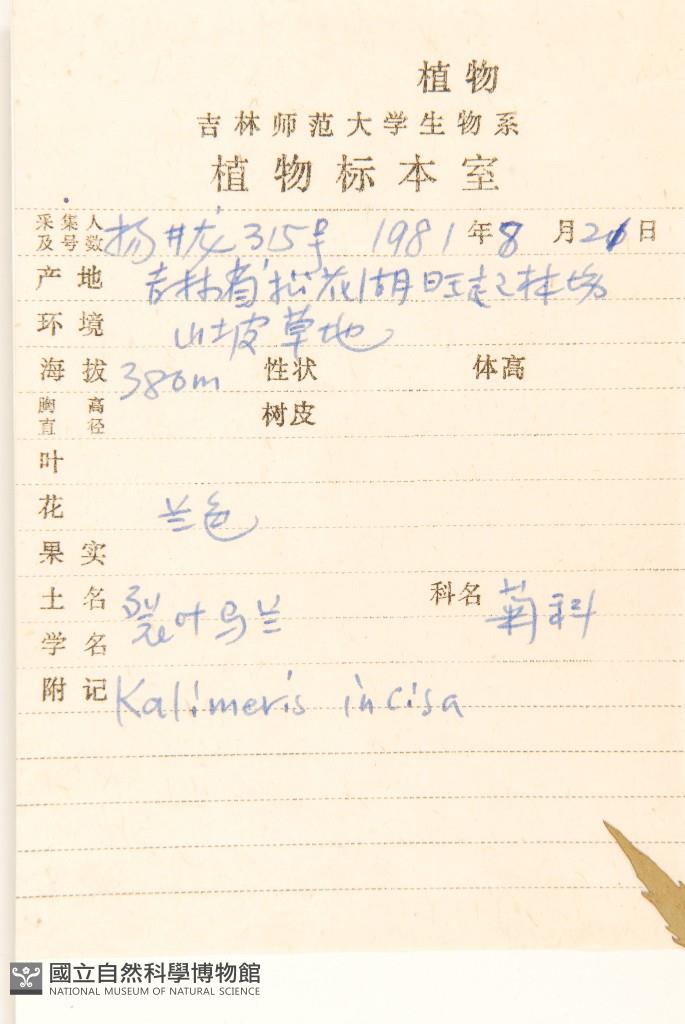 植物
吉林师范大学生物系
植物标本室
采集人及号数 杨井龙 315号 1981年8月26日
产地 吉林省松花湖旺起林场
环境 山坡草地
海拔 380m 性状 体高
胸高直径 树皮
叶
花 兰色
果实
土名 裂叶马兰 科名 菊科
学名
附记 Kalimeris incisa
國立自然科學博物館
NATIONAL MUSEUM OF NATURAL SCIENCE